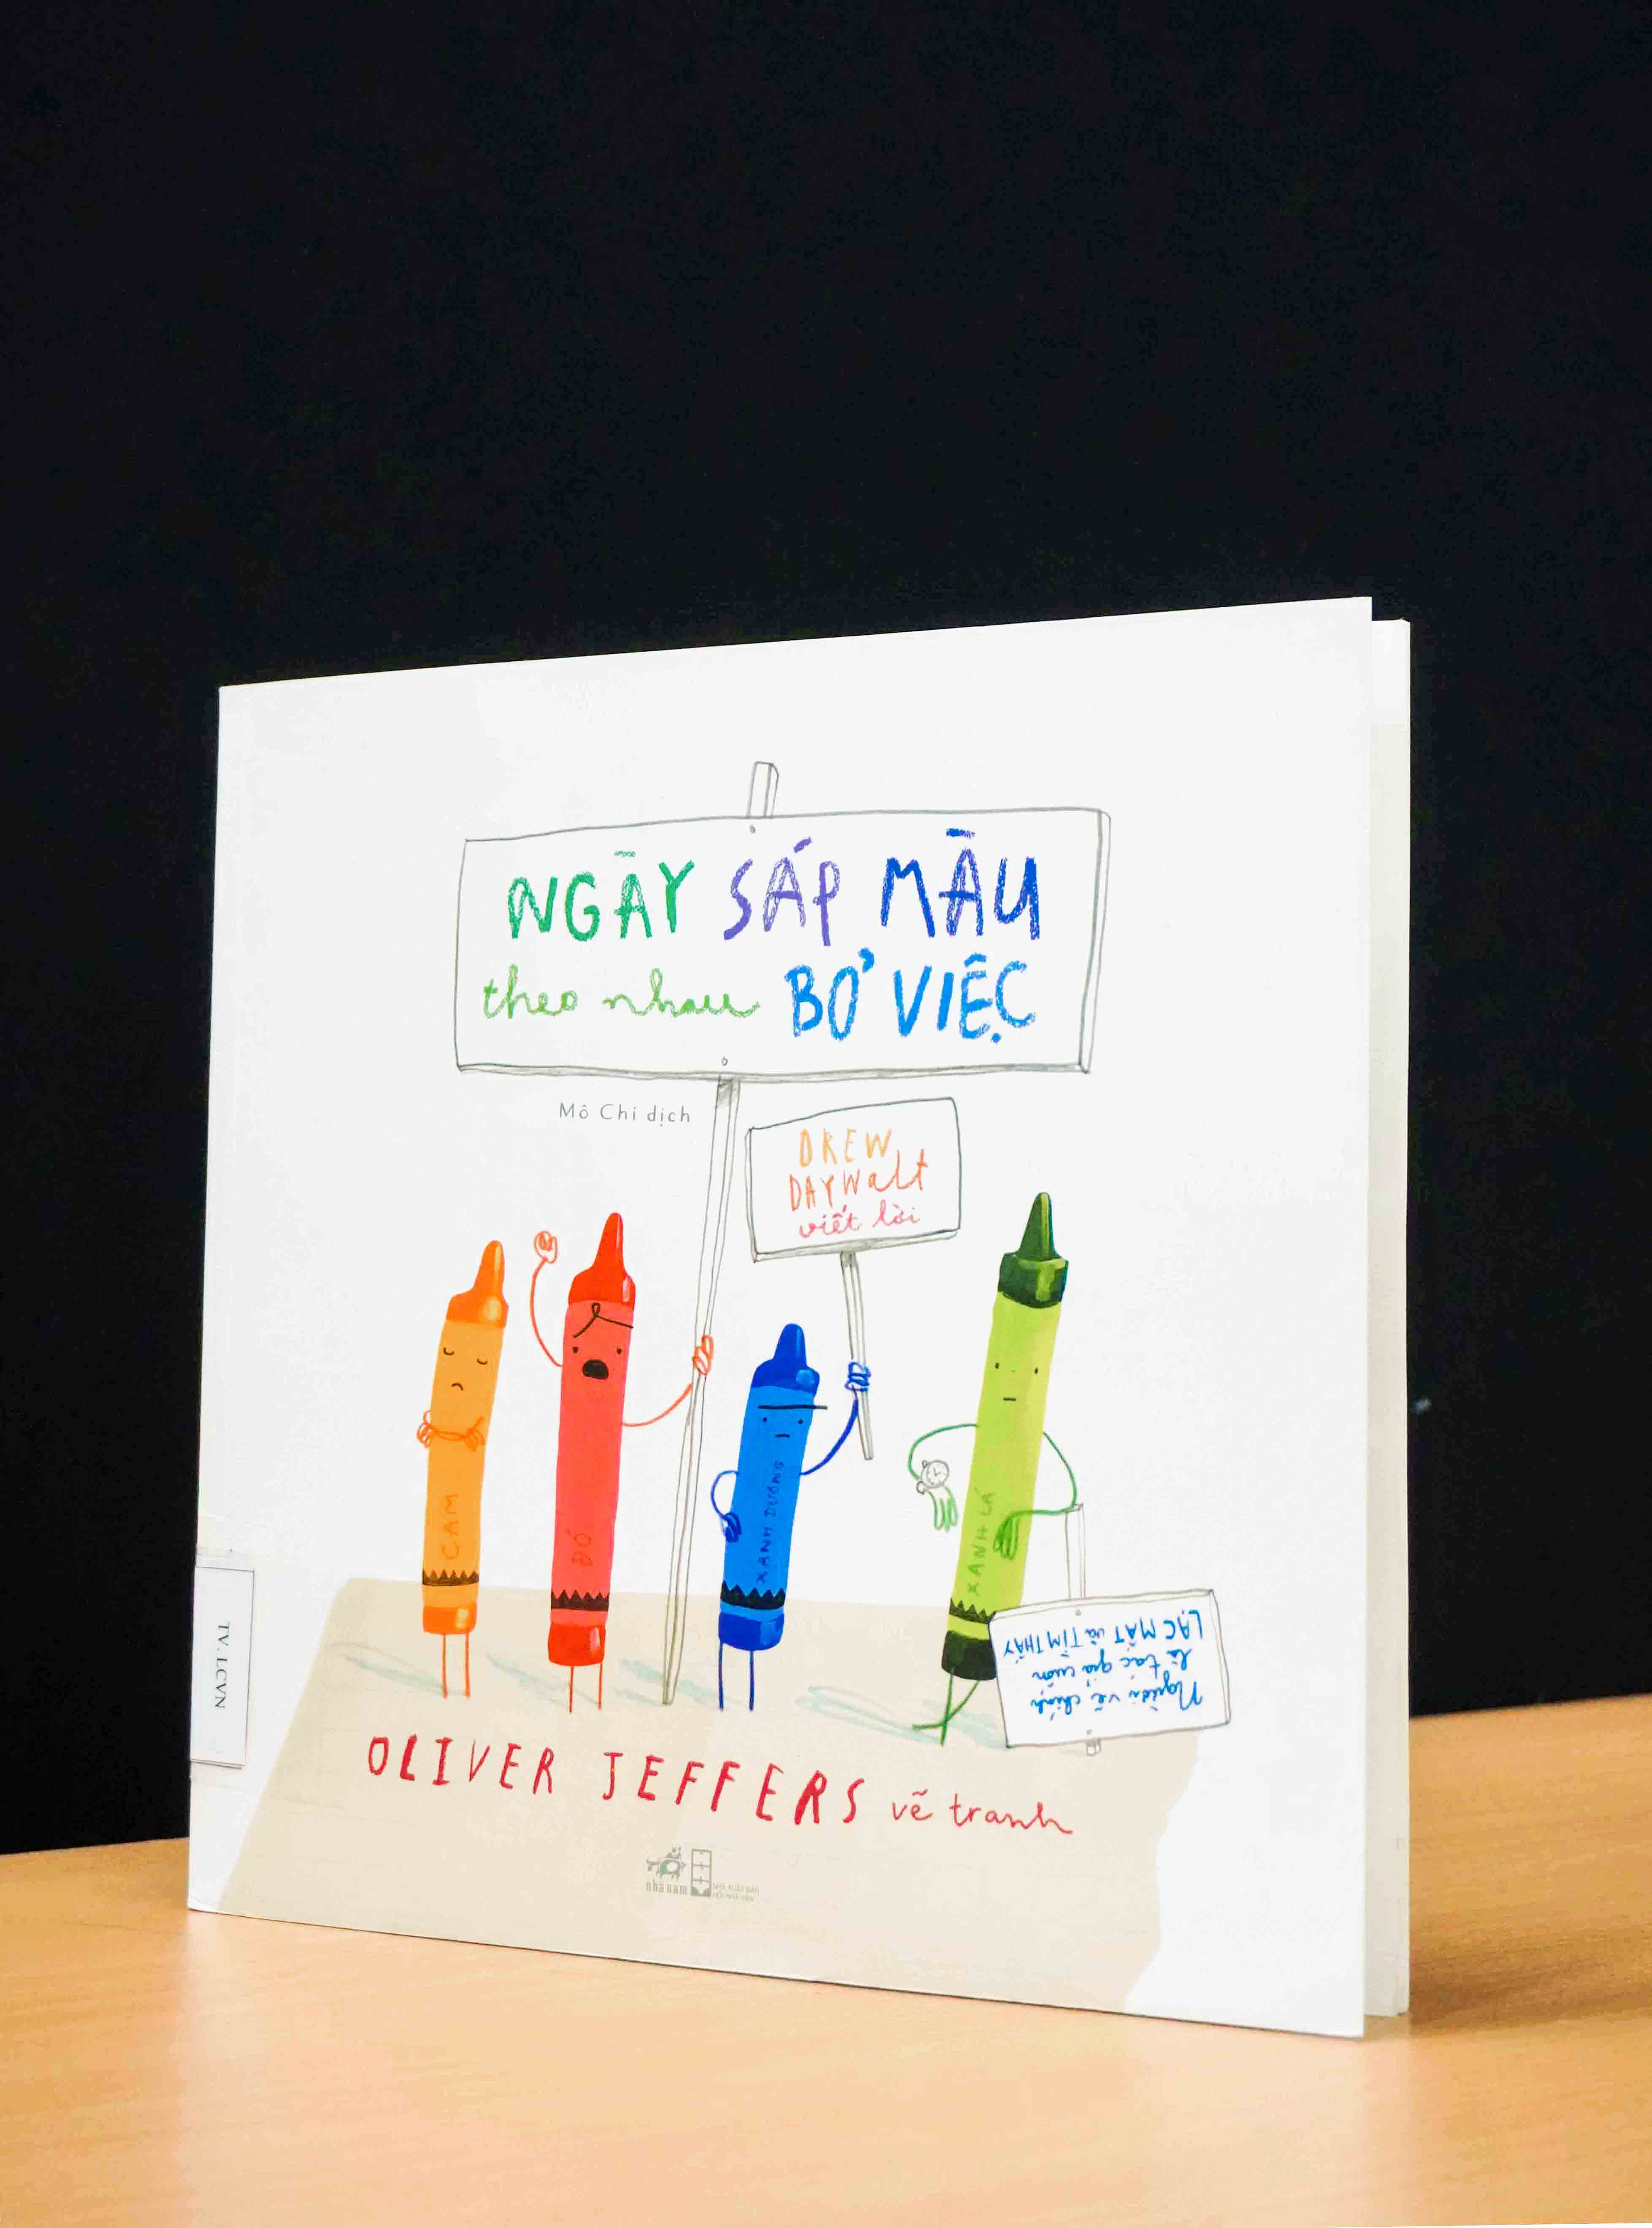 NGÀY SÁP MÀU
theo nhau BỎ VIỆC
Mô Chi dịch
DREW
DAYWALT
viết lời
CAM
ĐỎ
XANH DƯƠNG
XANH LÁ
Người vẽ chính
là tác giả cuốn
LẠC MẤT và TÌM THẤY
TV. LCVN
OLIVER JEFFERS vẽ tranh
nhã nam
NHÀ XUẤT BẢN
HỘI NHÀ VĂN